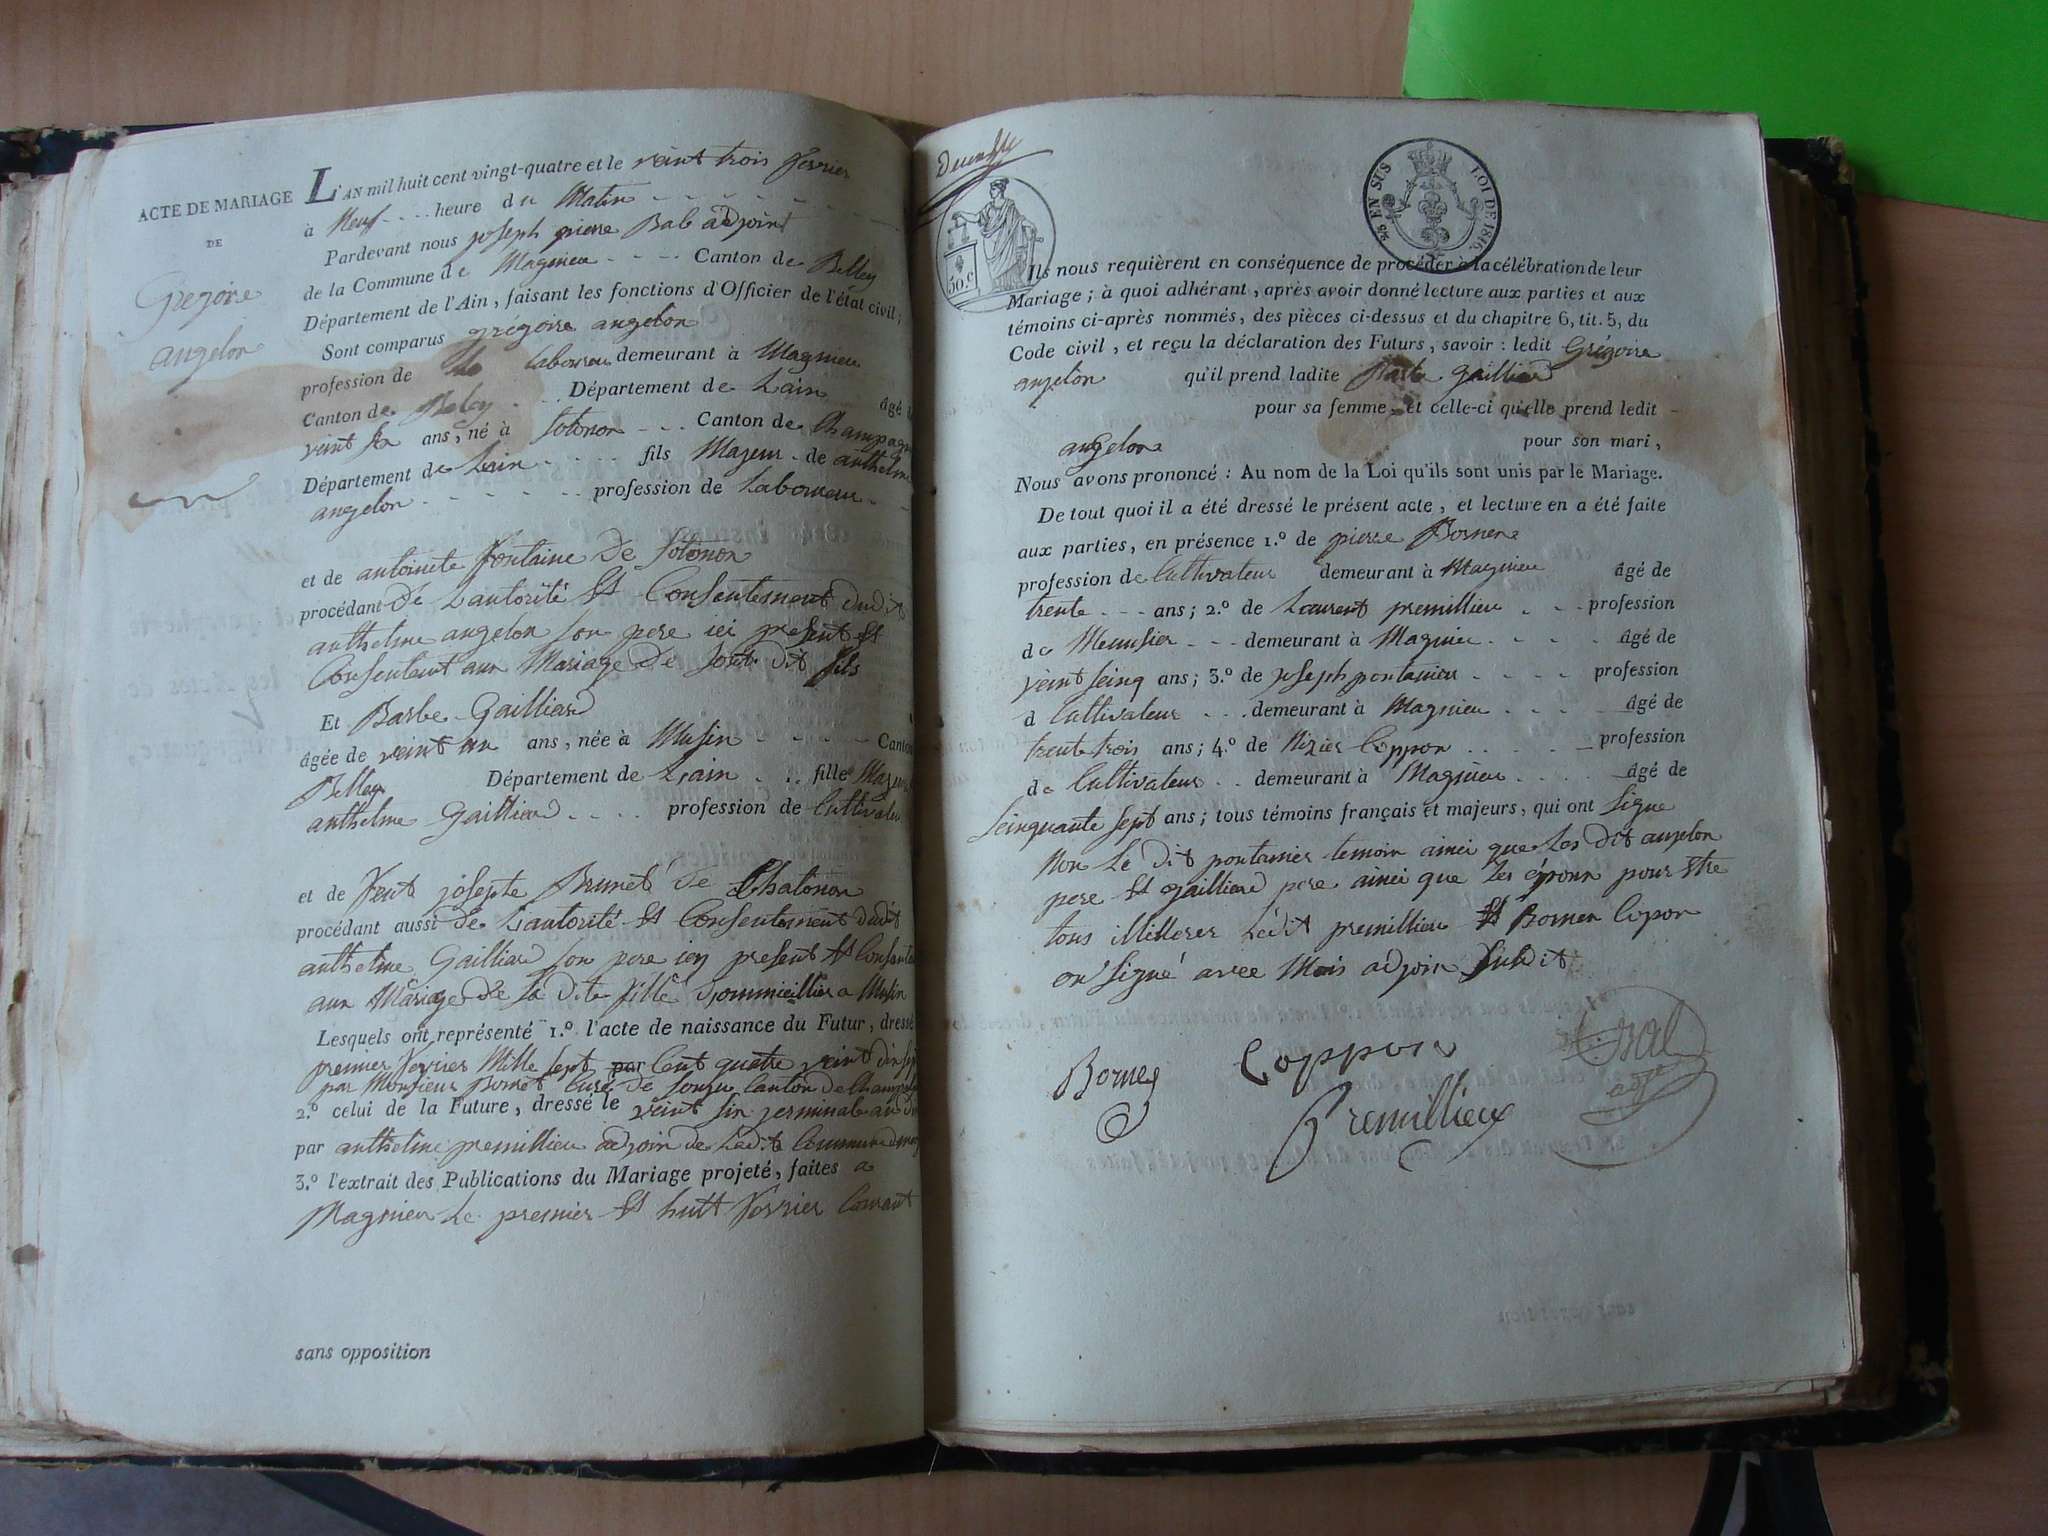 ACTE DE MARIAGE
DE
Gregoire
angelon
L'AN mil huit cent vingt-quatre et le veint trois fevrier
à Neuf heure du Matin
Pardevant nous joseph pierre Bal adjoint
de la Commune de Magnieu Canton de Belley
Département de l'Ain, faisant les fonctions d'Officier de l'état civil;
Sont comparus grégoire angelon
profession de laboureu demeurant à Magnieu
Canton de Beley Département de Lain âgé
veint six ans, né à Sotonon Canton de Champagne
Département de Lain fils Majeur de anthelme
angelon profession de Laboureur
et de antoinete fontaine De Sotonon
procédant De Lautorité Et Consentement dudit
anthelme angelon son pere ici present Et
Consentent aux Mariage De Sont dit fils
Et Barbe Gailliard
âgée de veint un ans, née à Musin Canton
Belley Département de Lain fille Majeur
anthelme Gailliard profession de Cultivateu
et de feut josepte Brunet De Chatonon
procédant aussi de Lautorité Et Consentement dudit
anthelme Gailliard son pere icy present Et Consente
aux Mariage De La Dite fille Dommieillier a Musin
Lesquels ont représenté 1.º l'acte de naissance du Futur, dressé
premier fevrier Mille sept par Cent quatre veint dix sept
par Monsieur Bornet Curé De Songu Canton De Champagne
2.º celui de la Future, dressé le veint six jerminale an
par anthelme premillieu adjoin de Ladite Commune
3.º l'extrait des Publications du Mariage projeté, faites a
Magnieu Le premier Et huit fevrier Courant
sans opposition
EN SUS
LOI DE 1816.
50.c
Ils nous requièrent en conséquence de procéder à la célébration de leur
Mariage; à quoi adhérant, après avoir donné lecture aux parties et aux
témoins ci-après nommés, des pièces ci-dessus et du chapitre 6, tit. 5, du
Code civil, et reçu la déclaration des Futurs, savoir: ledit Grégoire
angelon qu'il prend ladite Barbe gailliard
pour sa femme, et celle-ci qu'elle prend ledit
angelon pour son mari,
Nous avons prononcé: Au nom de la Loi qu'ils sont unis par le Mariage.
De tout quoi il a été dressé le présent acte, et lecture en a été faite
aux parties, en présence 1.º de pierre Borner
profession de Cultivateur demeurant à Magnieu âgé de
trente ans; 2.º de Laurent premillieu profession
de Meunsier demeurant à Magnieu âgé de
veint seinq ans; 3.º de joseph pontanier profession
d Cultivateur demeurant à Magnieu âgé de
trente trois ans; 4.º de Nizier Coppon profession
de Cultivateur demeurant à Magnieu âgé de
Seinquante sept ans; tous témoins français et majeurs, qui ont signe
Non Le dit pontanier temoin ainci que Les dit angelon
pere Et gailliard pere ainci que Les époux pour Etre
tous illiterer Ledit premillieu Et Borner Copon
on signé avec Mois adjoin Susdit
Borner
Coppon
Premillieux
Bal